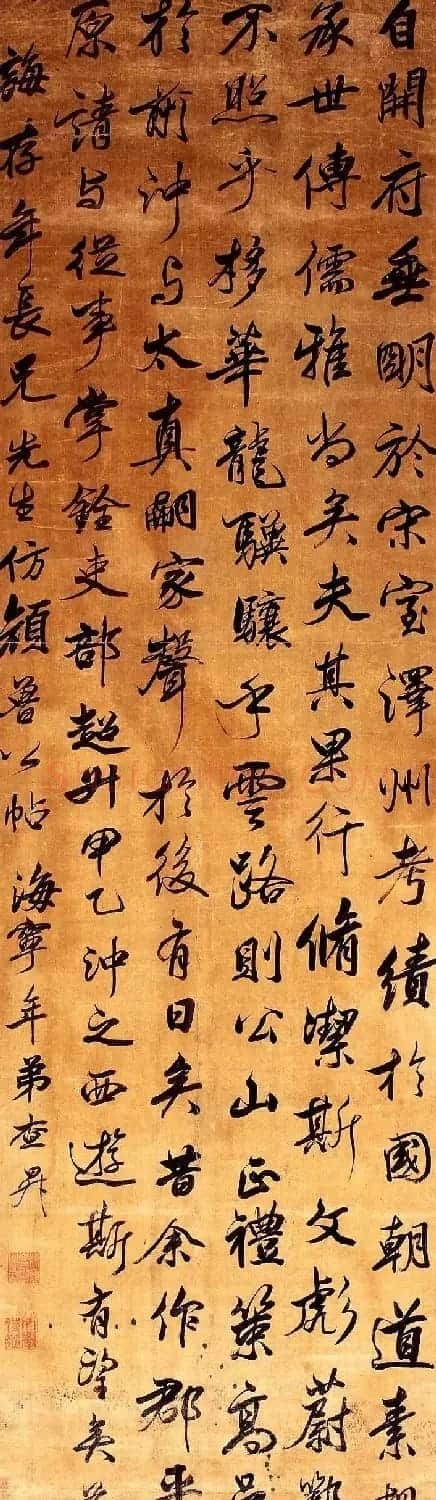 自開府垂明於宋室澤州考績於國朝道素
承世傳儒雅尚矣夫其果行脩潔斯文彪蔚鄂
不照乎栘華龍驥驤乎雲路則公山正禮策高
於前沖与太真嗣家聲於後有日矣昔余作郡平
原請与從事掌銓吏部超升甲乙沖之西遊斯有望矣
誨存年長兄先生仿顏魯公帖 海寧年弟查昇